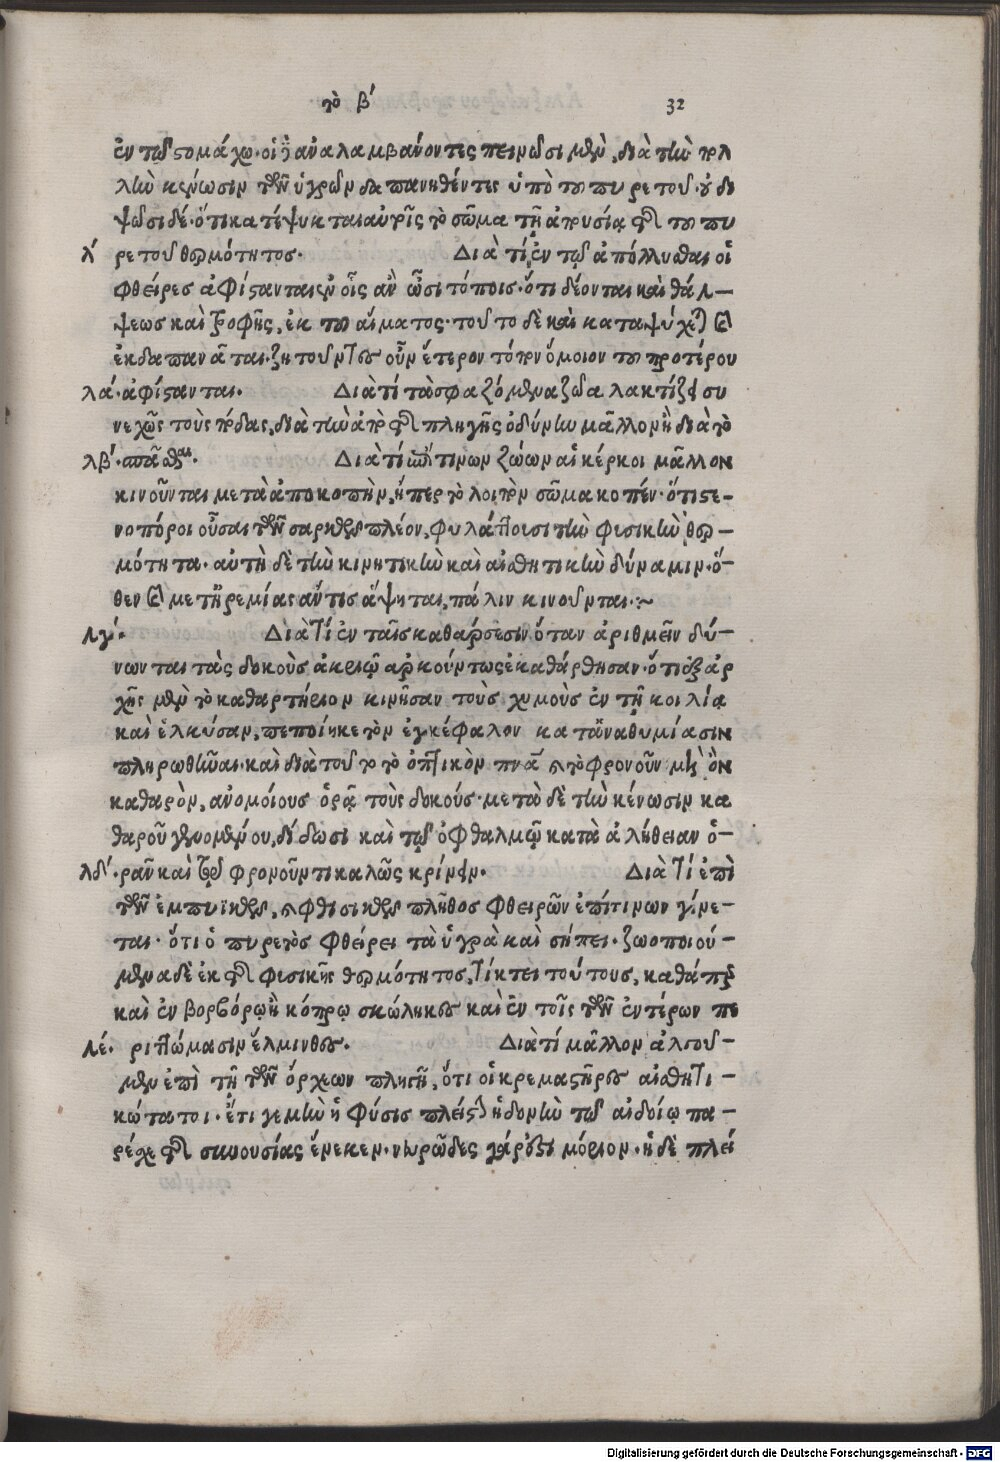 τὸ β´ 32
ἐν τῷ στομάχῳ· οἱ δὲ ἀναλαμβάνοντες πεινῶσι μὲν, διὰ τὴν πολ
λὴν κένωσιν τῶν ὑγρῶν δαπανηθέντες ὑπὸ τοῦ πυρετοῦ· οὐ δι
ψῶσι δέ· ὅτι κατέψυκται αὐτοῖς τὸ σῶμα τῇ ἀπουσίᾳ τῆς τοῦ πυ
λ´ ρετοῦ θερμότητος. Διὰ τί ἐν τῷ ἀπόλλυσθαι οἱ
φθεῖρες ἀφίστανται ἐν οἷς ἂν ὦσι τόποις· ὅτι δέονται καὶ θάλ-
ψεως καὶ τροφῆς, ἐκ τοῦ αἵματος· τοῦτο δὲ καὶ καταψύχεται καὶ
ἐκδαπανᾶται· ζητοῦντες οὖν ἕτερον τόπον ὅμοιον τοῦ προτέρου
λα´· ἀφίστανται. Διὰ τί τὰ σφαζόμενα ζῶα λακτίζει συ
νεχῶς τοὺς πόδας, διὰ τὴν ἀπὸ τῆς πληγῆς ὀδύνην μᾶλλον ἢ διὰ τὸ
λβ´· σπᾶσθαι. Διὰ τί τινων ζώων αἱ κέρκοι μᾶλλον
κινοῦνται μετὰ ἀποκοπὴν, ἤπερ τὸ λοιπὸν σῶμα κοπέν· ὅτι στε-
νοπόροι οὖσαι τῶν σαρκῶν πλέον, φυλάττουσι τὴν φυσικὴν θερ-
μότητα· αὐτὴ δὲ τὴν κινητικὴν καὶ αἰσθητικὴν δύναμιν· ὅ-
θεν καὶ μετ' ἠρεμίας ἄν τις ἅψηται, πάλιν κινοῦνται·~
λγ´. Διὰ τί ἐν ταῖς καθάρσεσιν ὅταν ἀριθμεῖν δύ-
νωνται τὰς δοκοὺς ἀκριβῶ ἀρκούντως ἐκαθάρθησαν· ὅτι ἐξ ἀρ
χῆς μὲν τὸ καθαρτήριον κινῆσαν τοὺς χυμοὺς ἐν τῇ κοιλίᾳ
καὶ ἑλκύσαν, πεποίηκε τὸν ἐγκέφαλον κατ' ἀναθυμίασιν
πληρωθῆναι· καὶ διὰ τοῦτο τὸ ὀπτικὸν πνᾶ καὶ τὸ φρονοῦν μὴ ὂν
καθαρὸν, ἀνομοίους ὁρᾷ τοὺς δοκούς· μετὰ δὲ τὴν κένωσιν κα
θαροῦ γενομένου, δίδωσι καὶ τῷ ὀφθαλμῷ κατὰ ἀλήθειαν ὁ-
λδ´· ρᾶν καὶ τῷ φρονοῦντι καλῶς κρίνειν. Διὰ τί ἐπὶ
τῶν ἐμπυϊκῶν, καὶ φθισικῶν πλῆθος φθειρῶν ἐπί τινων γίνε-
ται· ὅτι ὁ πυρετὸς φθείρει τὰ ὑγρὰ καὶ σήπει· ζωοποιού-
μενα δὲ ἐκ τῆς φυσικῆς θερμότητος, τίκτει τούτους, καθάπερ
καὶ ἐν βορβόρῳ ἢ κόπρῳ σκώληκες καὶ ἐν τοῖς τῶν ἐντέρων πε
λε´. ριττώμασιν ἕλμινθες. Διὰ τί μᾶλλον ἀλγοῦ-
μεν ἐπὶ τῇ τῶν ὄρχεων πληγῇ, ὅτι οἱ κρεμαστῆρες αἰσθητι-
κώτατοι· ἔτι γε μὴν ἡ φύσις πλείστην ἡδονὴν τῷ αἰδοίῳ πα-
ρέχει τῆς συνουσίας ἕνεκεν· νευρῶδες γάρ ἐστι μόριον· ἡ δὲ πλεί